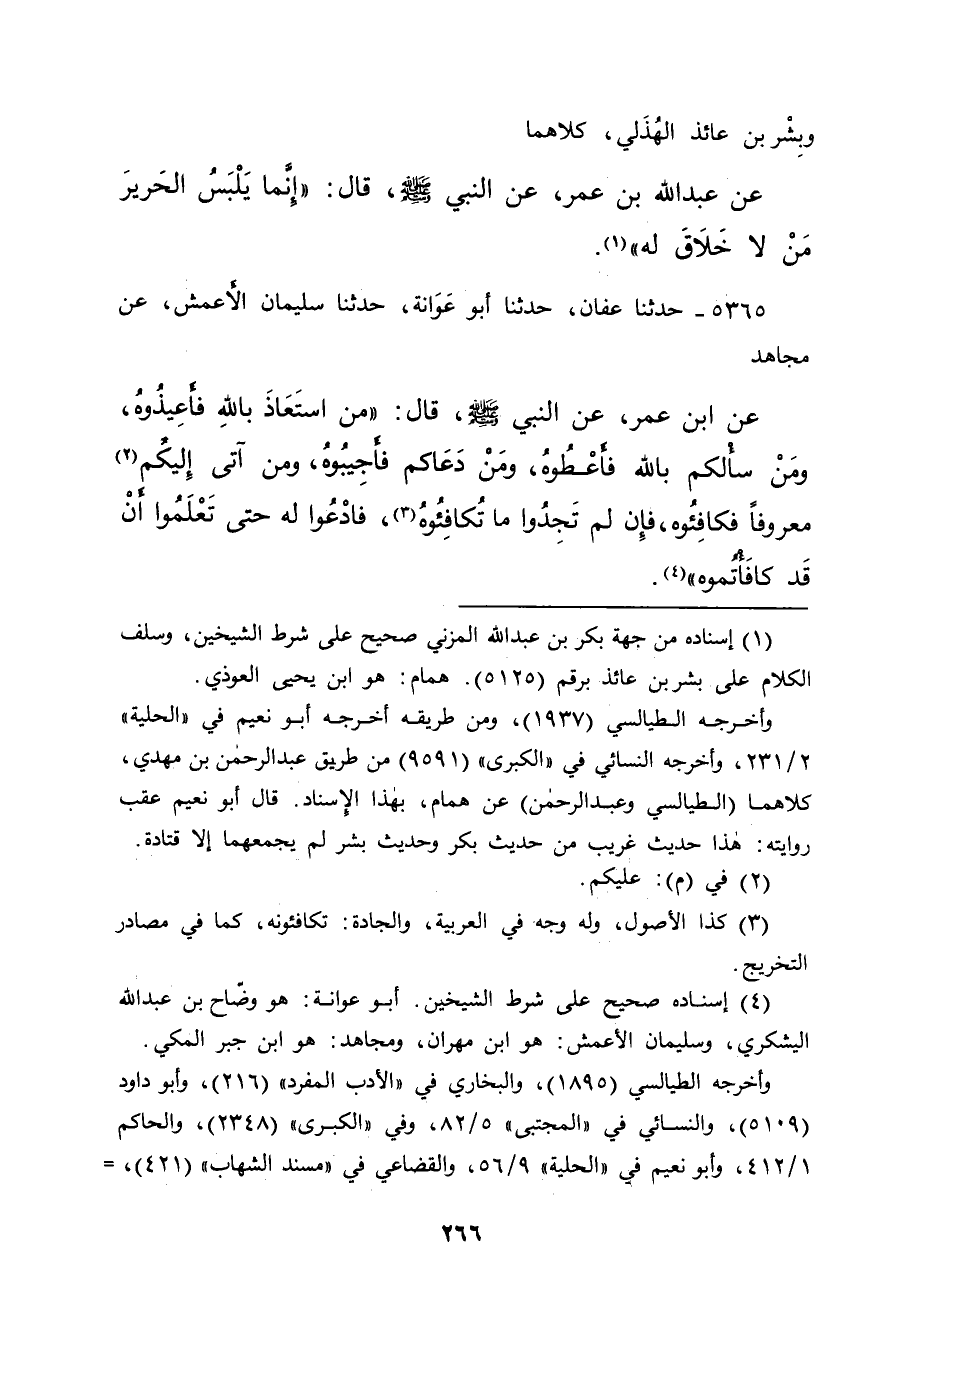 وبِشْر بن عائذ الهُذَلي، كلاهما
عن عبدالله بن عمر، عن النبي ﷺ، قال: «إِنَّما يَلْبَسُ الحَريرَ
مَنْ لا خَلَاقَ له»(١).
٥٣٦٥ ـ حدثنا عفان، حدثنا أبو عَوَانة، حدثنا سليمان الأَعمش، عن
مجاهد
عن ابن عمر، عن النبي ﷺ، قال: «من استَعَاذَ باللهِ فأَعِيذُوهُ،
ومَنْ سأَلكم بالله فأَعْطُوهُ، ومَنْ دَعَاكم فأَجِيبُوهُ، ومن آتى إِليكُم(٢)
معروفاً فكافِئُوه، فإِن لم تَجِدُوا ما تُكافِئُوهُ(٣)، فادْعُوا له حتى تَعْلَمُوا أَنْ
قَد كافَأْتُموه»(٤).
(١) إسناده من جهة بكر بن عبدالله المزني صحيح على شرط الشيخين، وسلف
الكلام على بشر بن عائذ برقم (٥١٢٥). همام: هو ابن يحيى العوذي.
وأخرجه الطيالسي (١٩٣٧)، ومن طريقه أخرجه أبو نعيم في «الحلية»
٢٣١/٢، وأخرجه النسائي في «الكبرى» (٩٥٩١) من طريق عبدالرحمٰن بن مهدي،
كلاهما (الطيالسي وعبدالرحمٰن) عن همام، بهٰذا الإِسناد. قال أبو نعيم عقب
روايته: هٰذا حديث غريب من حديث بكر وحديث بشر لم يجمعهما إلا قتادة.
(٢) في (م): عليكم.
(٣) كذا الأصول، وله وجه في العربية، والجادة: تكافئونه، كما في مصادر
التخريج.
(٤) إسناده صحيح على شرط الشيخين. أبو عوانة: هو وضّاح بن عبدالله
اليشكري، وسليمان الأعمش: هو ابن مهران، ومجاهد: هو ابن جبر المكي.
وأخرجه الطيالسي (١٨٩٥)، والبخاري في «الأدب المفرد» (٢١٦)، وأبو داود
(٥١٠٩)، والنسائي في «المجتبى» ٨٢/٥، وفي «الكبرى» (٢٣٤٨)، والحاكم
٤١٢/١، وأبو نعيم في «الحلية» ٥٦/٩، والقضاعي في «مسند الشهاب» (٤٢١)، =
٢٦٦